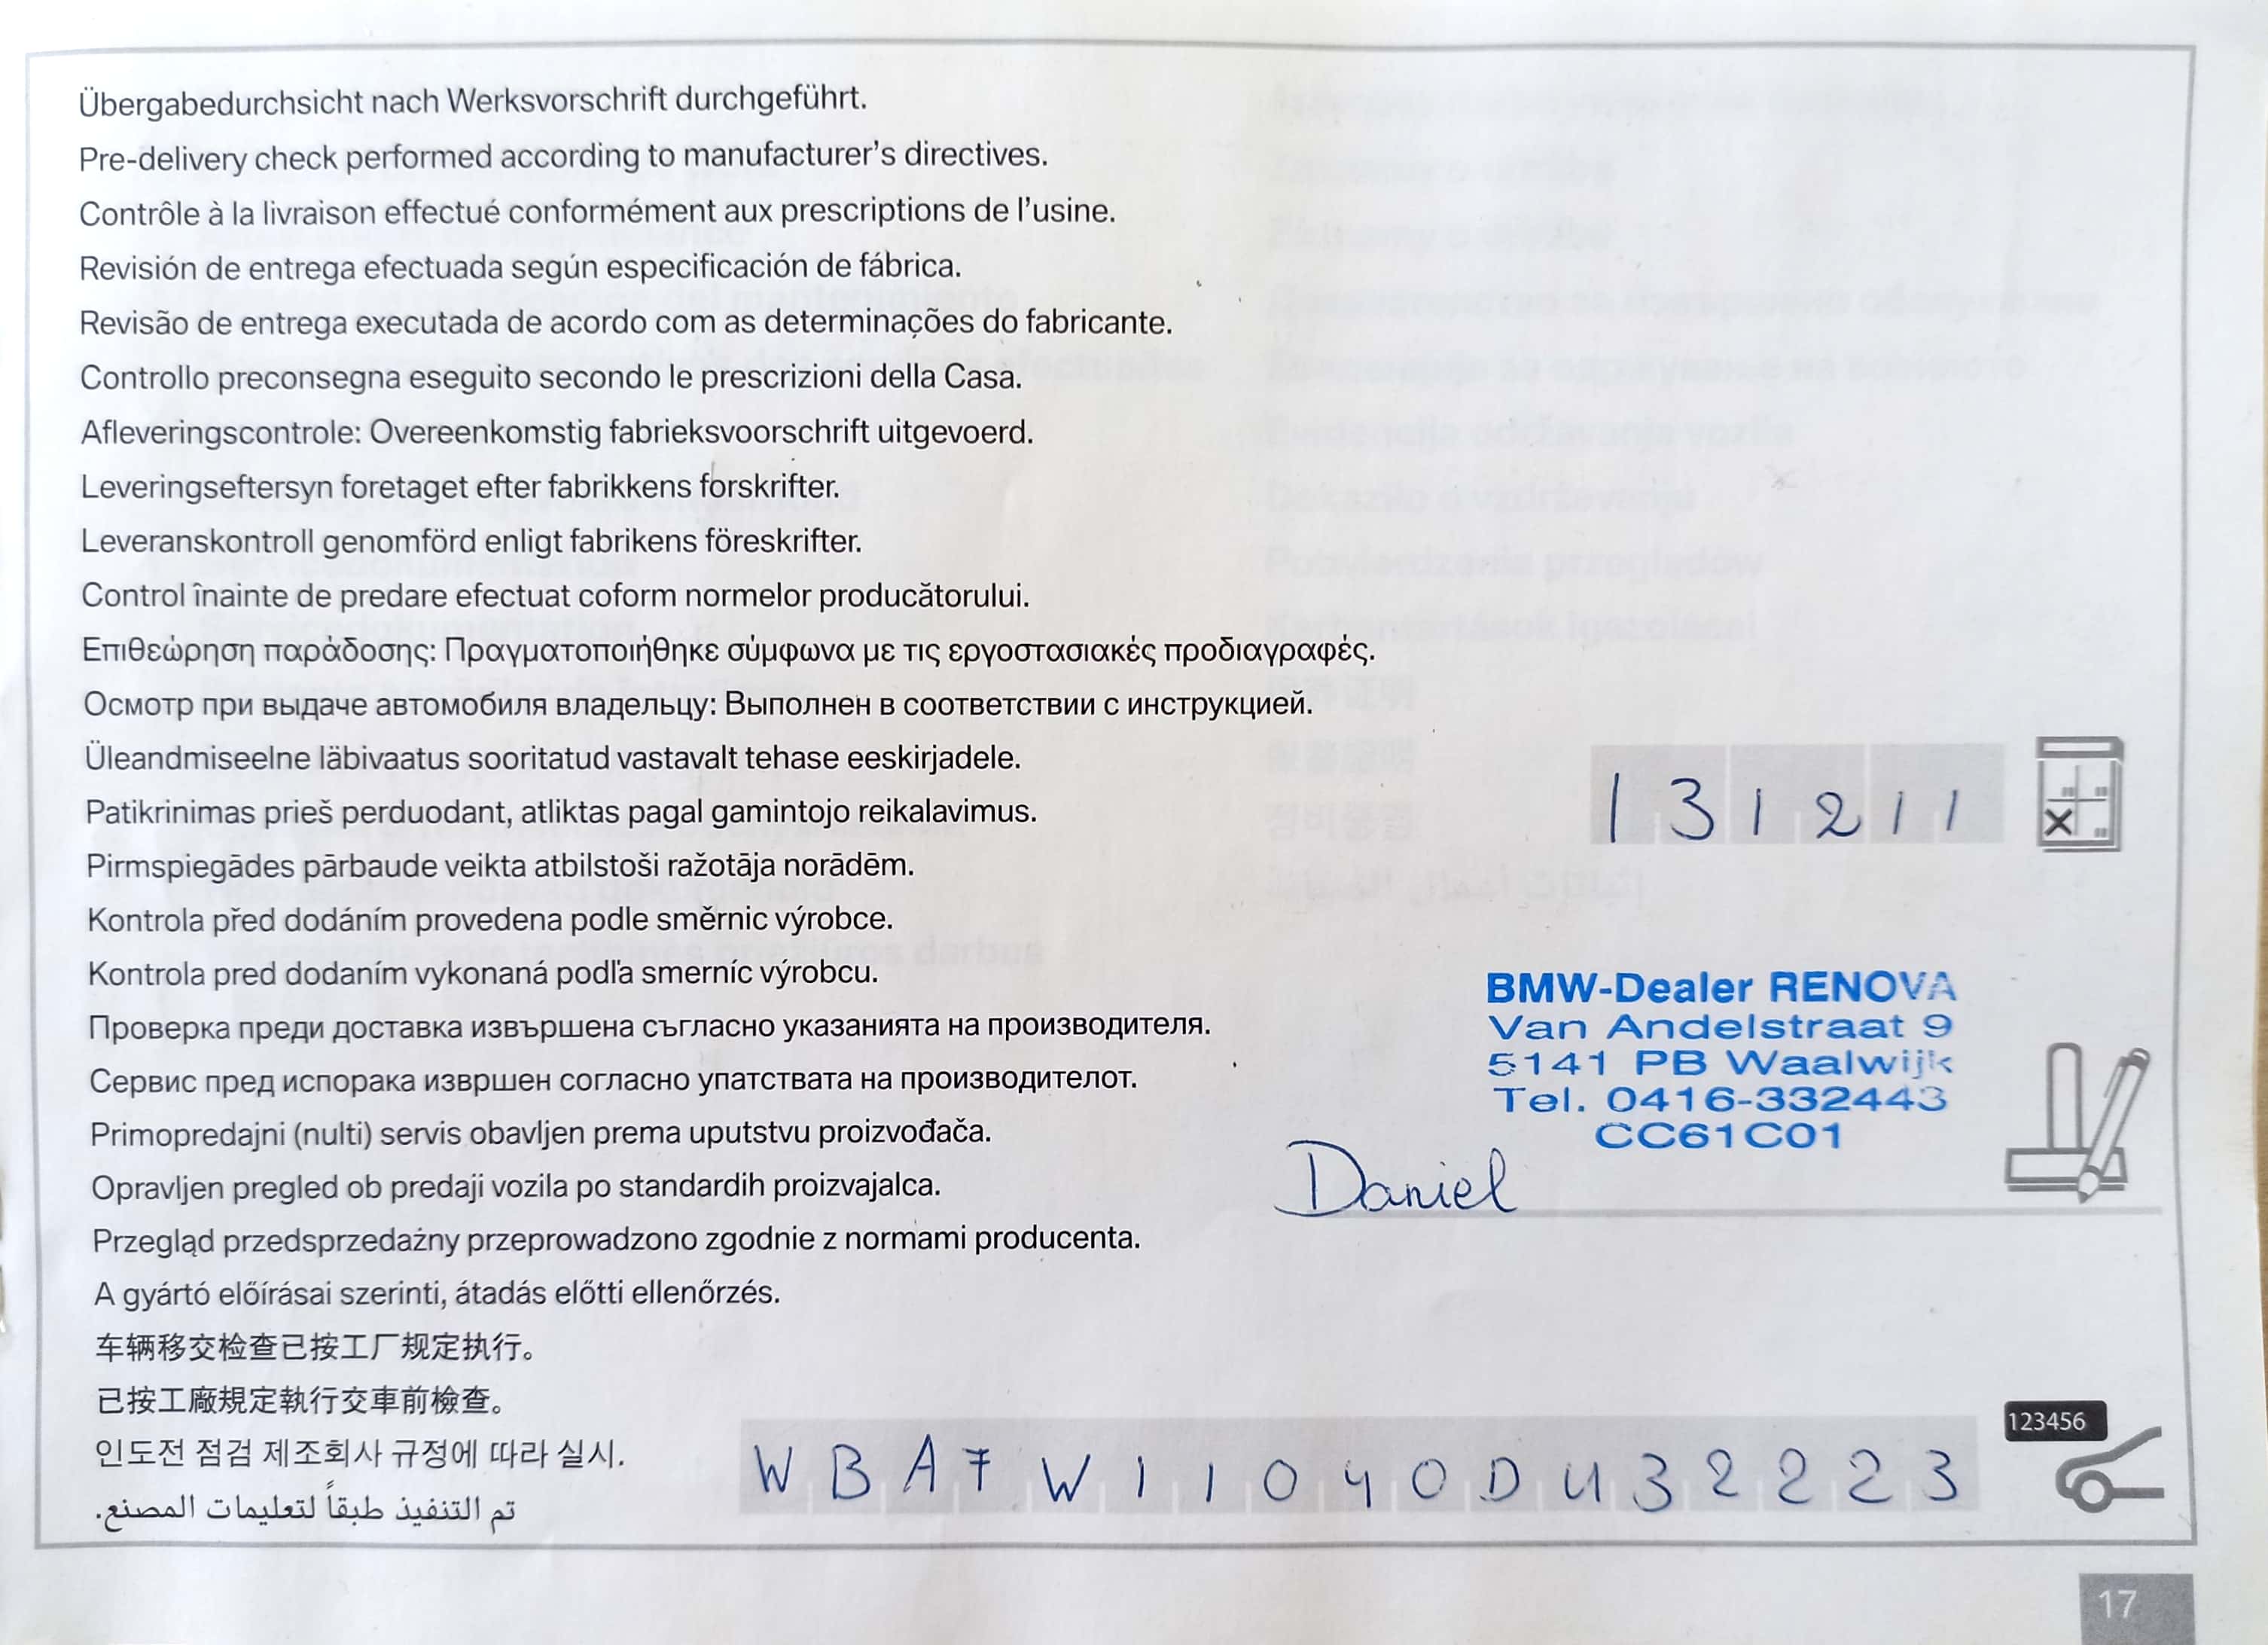 Übergabedurchsicht nach Werksvorschrift durchgeführt.
Pre-delivery check performed according to manufacturer's directives.
Contrôle à la livraison effectué conformément aux prescriptions de l'usine.
Revisión de entrega efectuada según especificación de fábrica.
Revisão de entrega executada de acordo com as determinações do fabricante.
Controllo preconsegna eseguito secondo le prescrizioni della Casa.
Afleveringscontrole: Overeenkomstig fabrieksvoorschrift uitgevoerd.
Leveringseftersyn foretaget efter fabrikkens forskrifter.
Leveranskontroll genomförd enligt fabrikens föreskrifter.
Control înainte de predare efectuat coform normelor producătorului.
Επιθεώρηση παράδοσης: Πραγματοποιήθηκε σύμφωνα με τις εργοστασιακές προδιαγραφές.
Осмотр при выдаче автомобиля владельцу: Выполнен в соответствии с инструкцией.
Üleandmiseelne läbivaatus sooritatud vastavalt tehase eeskirjadele.
Patikrinimas prieš perduodant, atliktas pagal gamintojo reikalavimus.
Pirmspiegādes pārbaude veikta atbilstoši ražotāja norādēm.
Kontrola před dodáním provedena podle směrnic výrobce.
Kontrola pred dodaním vykonaná podľa smerníc výrobcu.
Проверка преди доставка извършена съгласно указанията на производителя.
Сервис пред испорака извршен согласно упатствата на производителот.
Primopredajni (nulti) servis obavljen prema uputstvu proizvođača.
Opravljen pregled ob predaji vozila po standardih proizvajalca.
Przegląd przedsprzedażny przeprowadzono zgodnie z normami producenta.
A gyártó előírásai szerinti, átadás előtti ellenőrzés.
车辆移交检查已按工厂规定执行。
已按工廠規定執行交車前檢查。
인도전 점검 제조회사 규정에 따라 실시.
تم التنفيذ طبقاً لتعليمات المصنع.
131211
BMW-Dealer RENOVA
Van Andelstraat 9
5141 PB Waalwijk
Tel. 0416-332443
CC61C01
Daniel
123456
WBA7W11040DU32223
17